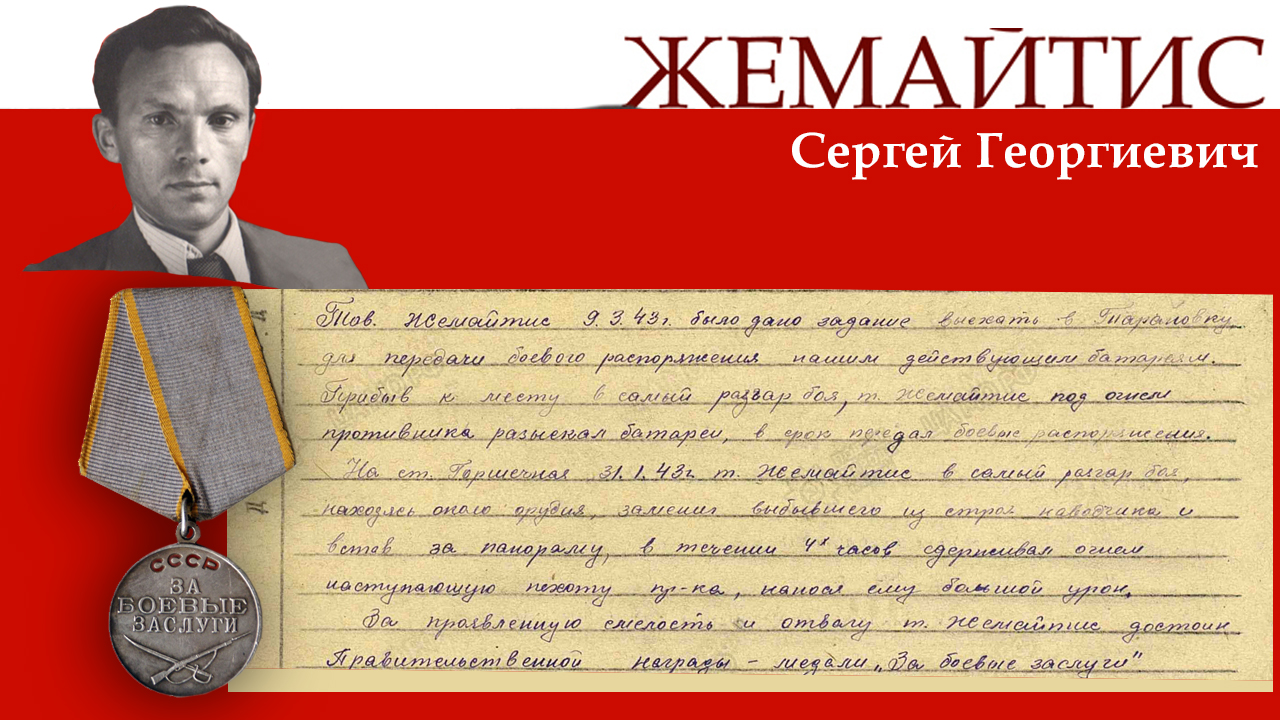 ЖЕМАЙТИС
Сергей Георгиевич
Тов. Жемайтис 9.3.43г. было дано задание выехать в Тарановку
для передачи боевого распоряжения нашим действующим батареям.
Прибыв к месту в самый разгар боя, т. Жемайтис под огнем
противника разыскал батареи, в срок передал боевые распоряжения.
На ст. Горшечная 31.1.43г. т. Жемайтис в самый разгар боя,
находясь около орудия, заменил выбывшего из строя наводчика и
встав за панораму, в течении 4х часов сдерживал огнем
наступающую пехоту пр-ка, нанося ему большой урон.
За проявленную смелость и отвагу т. Жемайтис достоин
Правительственной награды – медали „За боевые заслуги"
СССР
ЗА
БОЕВЫЕ
ЗАСЛУГИ